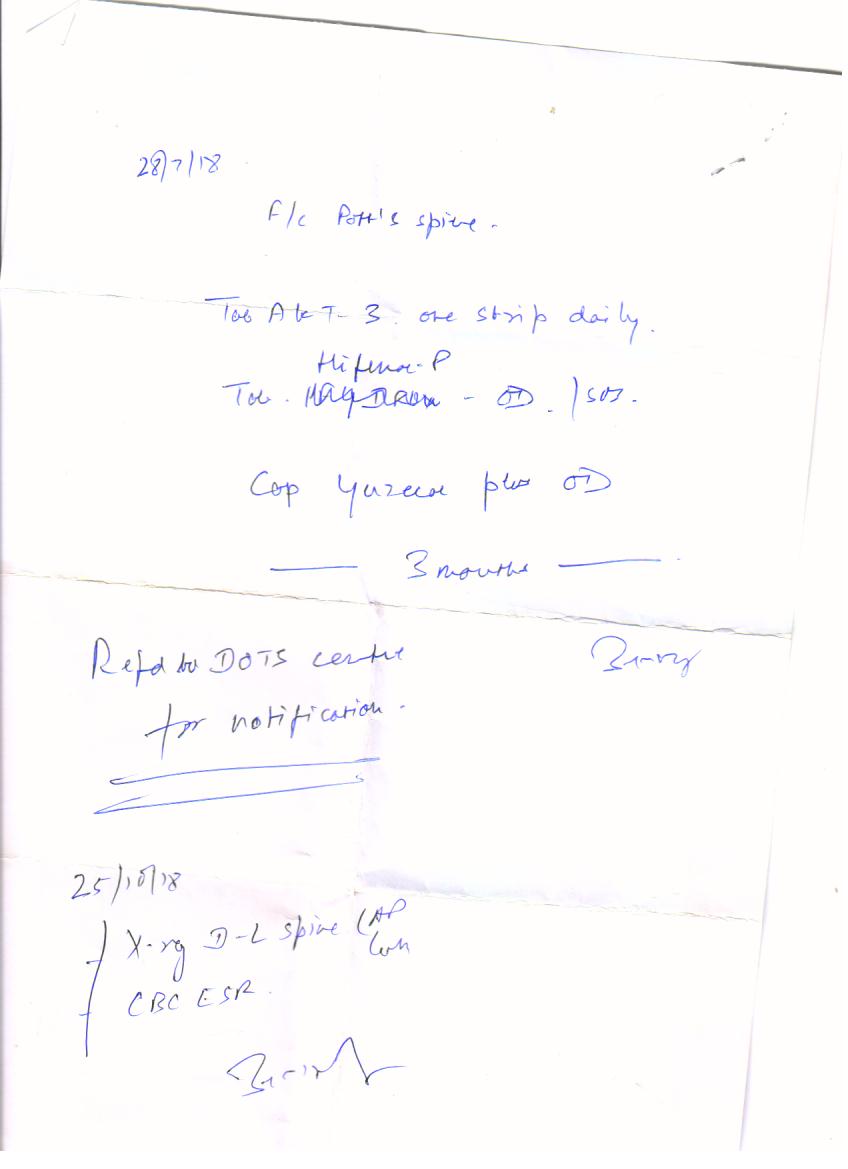 28/7/18
F/c Pott's spine.
Tab AkT-3. one strip daily.
Hifenac-P
Tab. - OD. /SOS.
Cap plus OD
3 months
Refd to DOTS centre
for notification.
25/10/18
X-ray D-L spine (AP
CBC ESR.